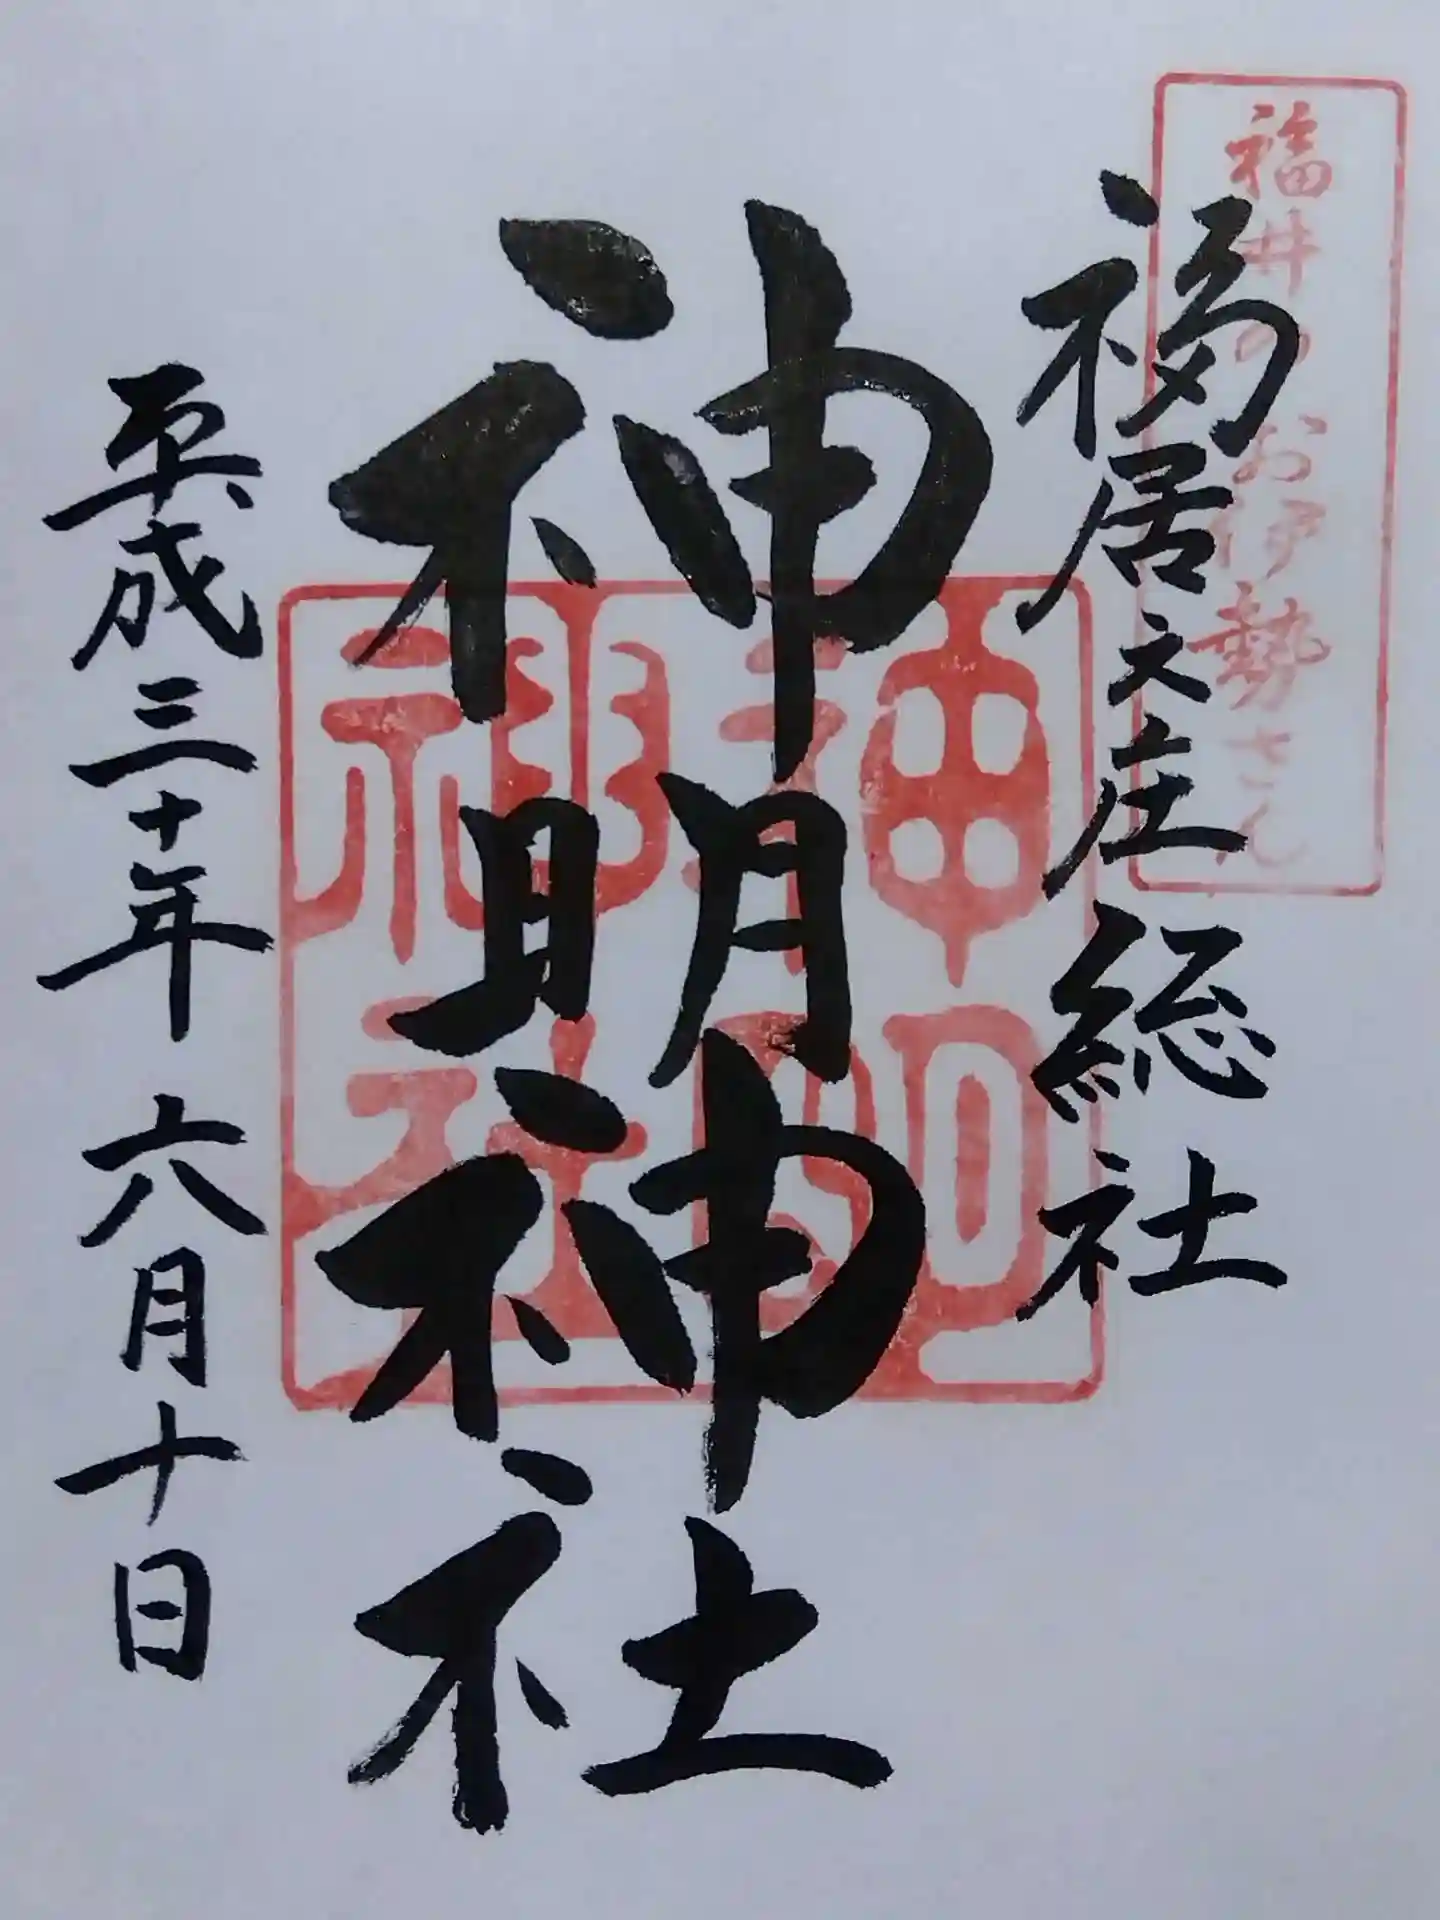 福井のお伊勢さん
福居文庄総社
神明神社
神明神社
平成三十年六月十日